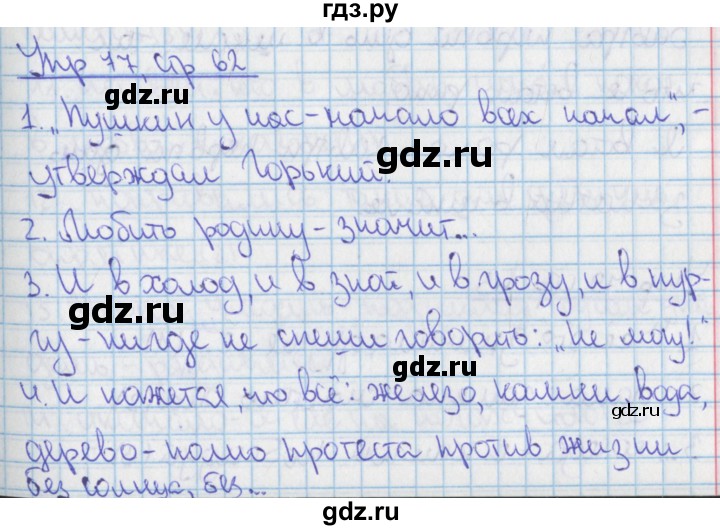 гдз.ру
Упр 17, стр 62
1. „Пушкин у нас - начало всех начал", -
утверждал Горький.
гдз.ру
2. Любить родину - значит...
3. И в холод, и в зной, и в грозу, и в пур-
гдз.ру
гдз.ру
гу - нигде не спеши говорить: „Не могу!"
4. И кажется, что всё: железо, камни, вода,
гдз.ру
дерево - полно протеста против жизни
без солнца, без...
гдз.ру